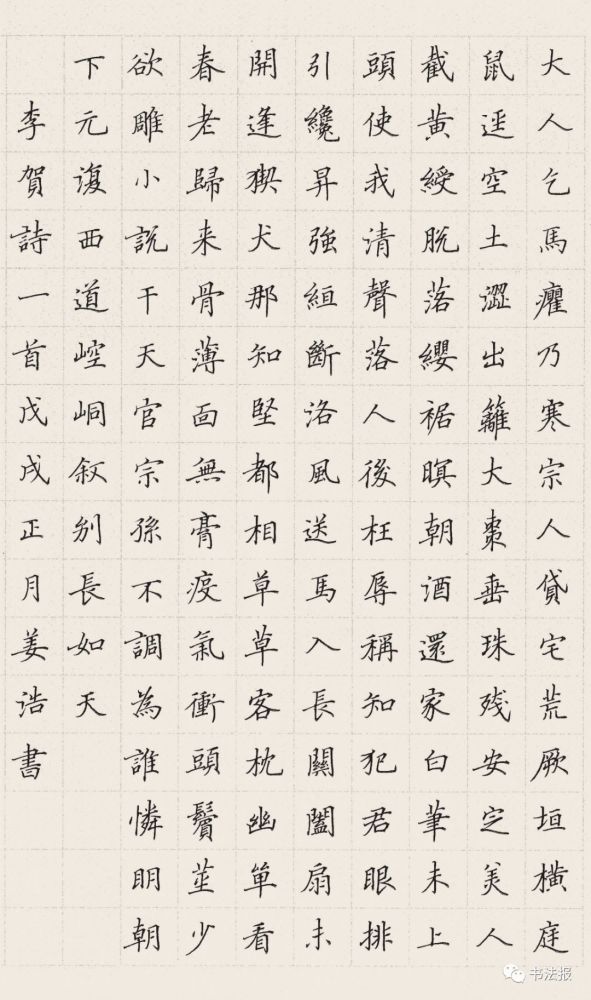 大人乞馬癯乃寒宗人貸宅荒厥垣橫庭
鼠逕空土澀出籬大棗垂珠残安定美人
截黄綬脱落纓裾暝朝酒還家白筆未上
頭使我清聲落人後枉辱稱知犯君眼排
引纔昇強絙斷洛風送馬入長關闔扇未
開逢猰犬那知堅都相草草客枕幽單看
春老歸来骨薄面無膏疫氣衝頭鬢莖少
欲雕小説干天官宗孫不調為誰憐明朝
下元復西道崆峒叙别長如天
李賀詩一首戊戌正月姜浩書
书法报